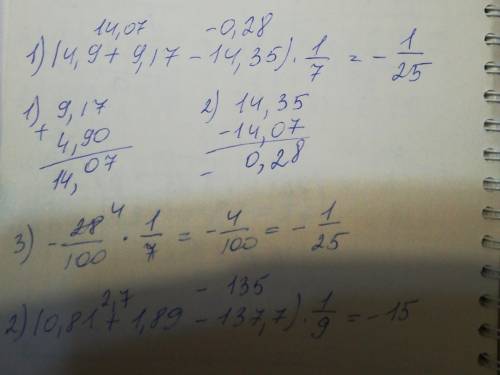 14,07 -0,28
1) (4,9 + 9,17 - 14,35) · 1/7 = - 1/25
1) 9,17 2) 14,35
+ 4,90 - 14,07
14,07 - 0,28
3) - 28/100 4 · 1/7 = - 4/100 = - 1/25
2,7 - 135
2) (0,81 + 1,89 - 137,7) · 1/9 = - 15